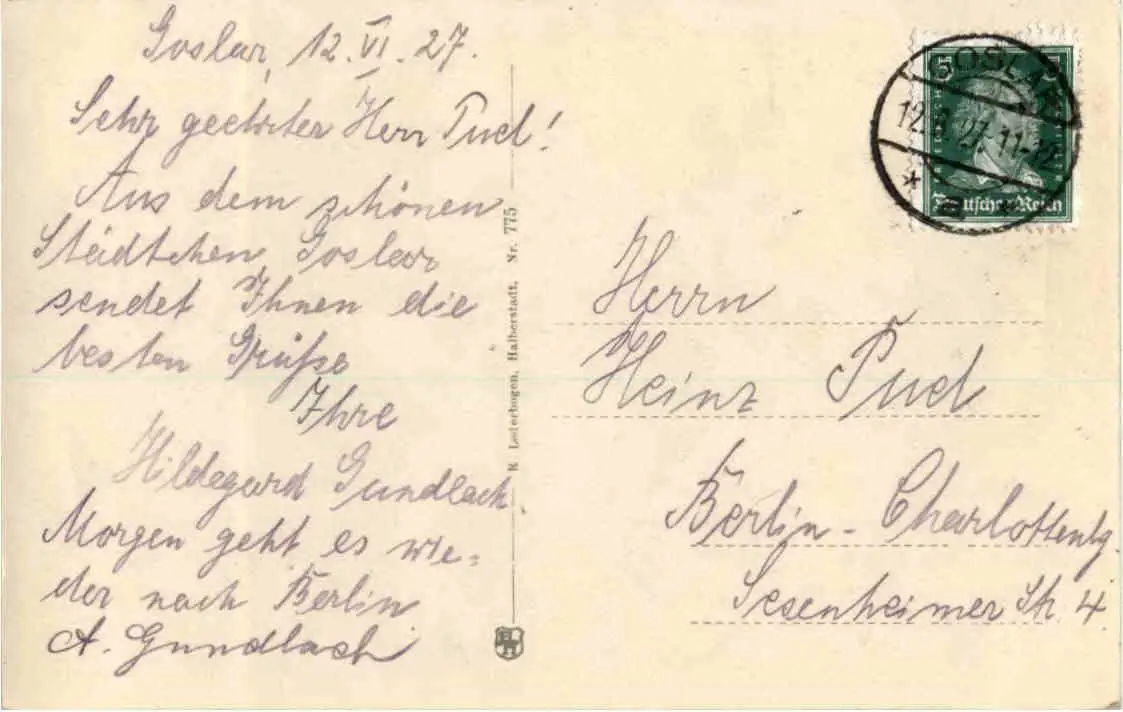 Goslar, 12. VI. 27.
Sehr geehrter Herr Pud!
Aus dem schönen
Städtchen Goslar
sendet Ihnen die
besten Grüße
Ihre
Hildegard Gundlach.
Morgen geht es wie=
der nach Berlin.
A. Gundlach
R. Lederbogen, Halberstadt, Nr. 775
GOSLAR
12. 6. 27. 11-12
* a
5 5
Deutsches Reich
Herrn
Heinz Pud
Berlin-Charlottenbg.
Sesenheimer Str. 4.